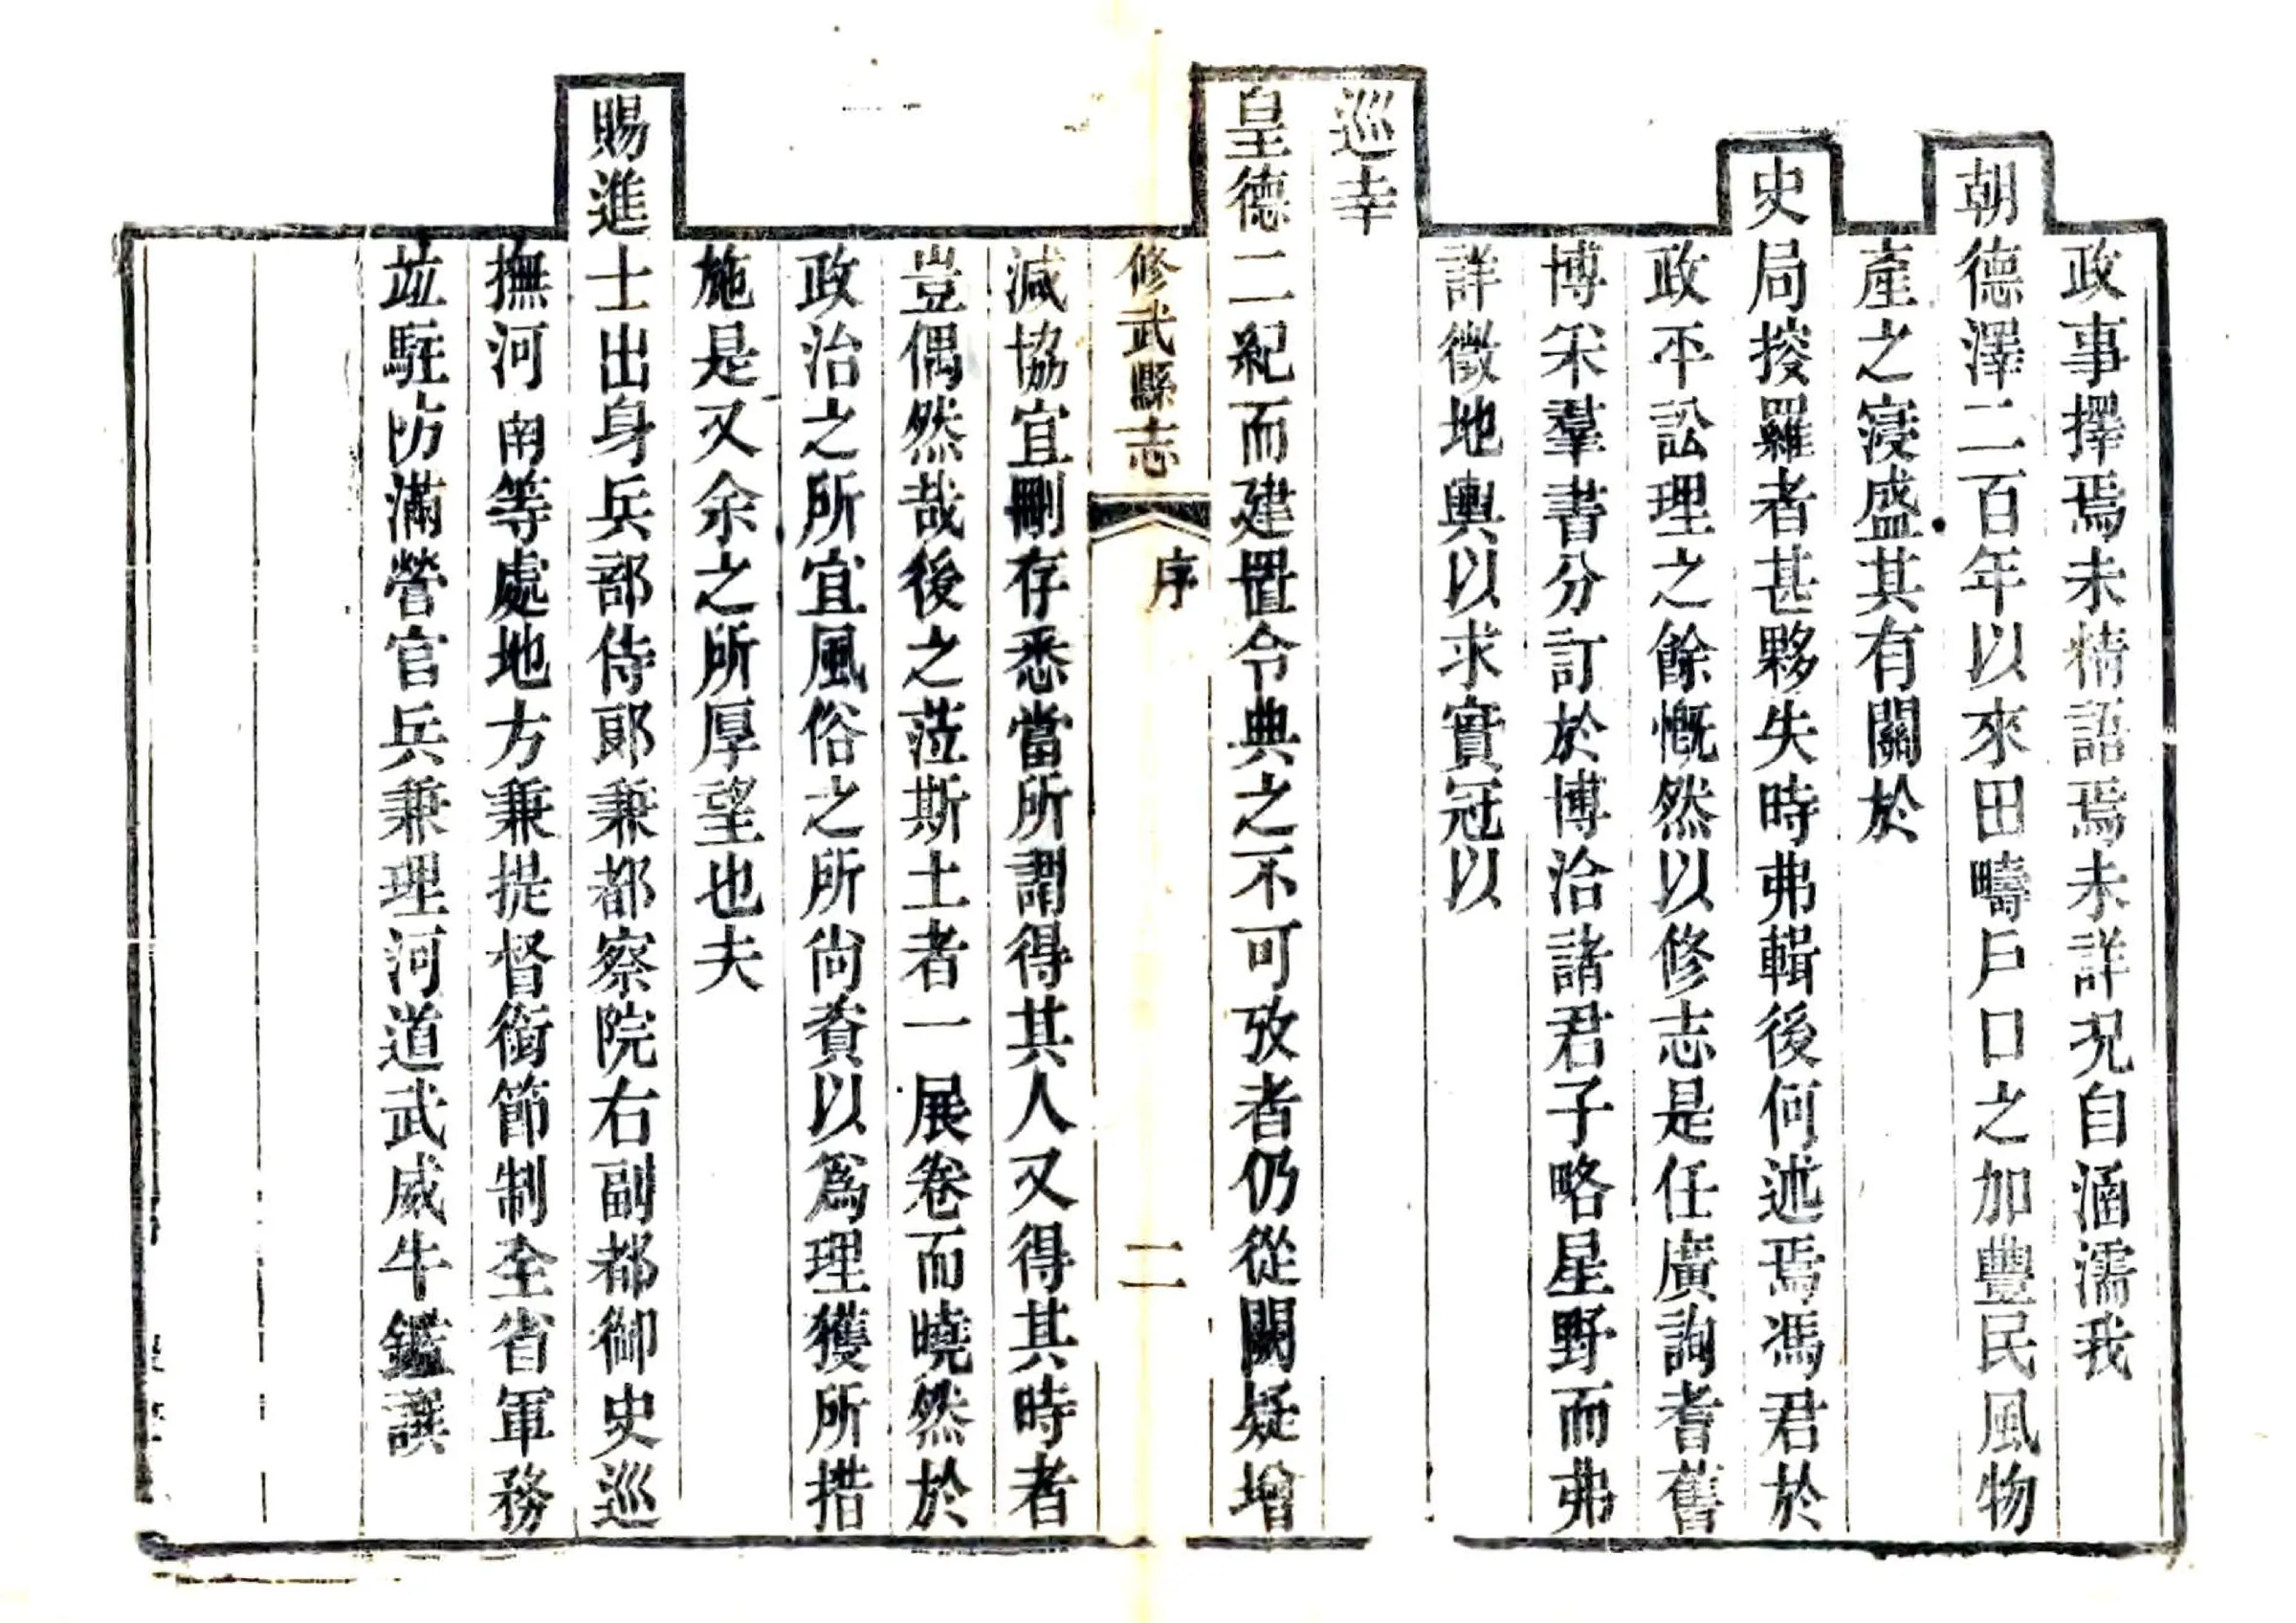 政事擇焉未精語焉未詳况自涵濡我
朝德澤二百年以來田疇戶口之加豐民風物
產之寖盛其有關於
史局搜羅者甚夥失時弗輯後何述焉馮君於
政平訟理之餘慨然以修志是任廣詢耆舊
博采羣書分訂於博洽諸君子略星野而弗
詳徵地輿以求實冠以
巡幸
皇德二紀而建置令典之不可攷者仍從闕疑增
修武縣志
序
二
減協宜刪存悉當所謂得其人又得其時者
豈偶然哉後之蒞斯土者一展卷而曉然於
政治之所宜風俗之所尚資以爲理獲所措
施是又余之所厚望也夫
賜進士出身兵部侍郎兼都察院右副都御史巡
撫河南等處地方兼提督銜節制全省軍務
竝駐防滿營官兵兼理河道武威牛鑑譔